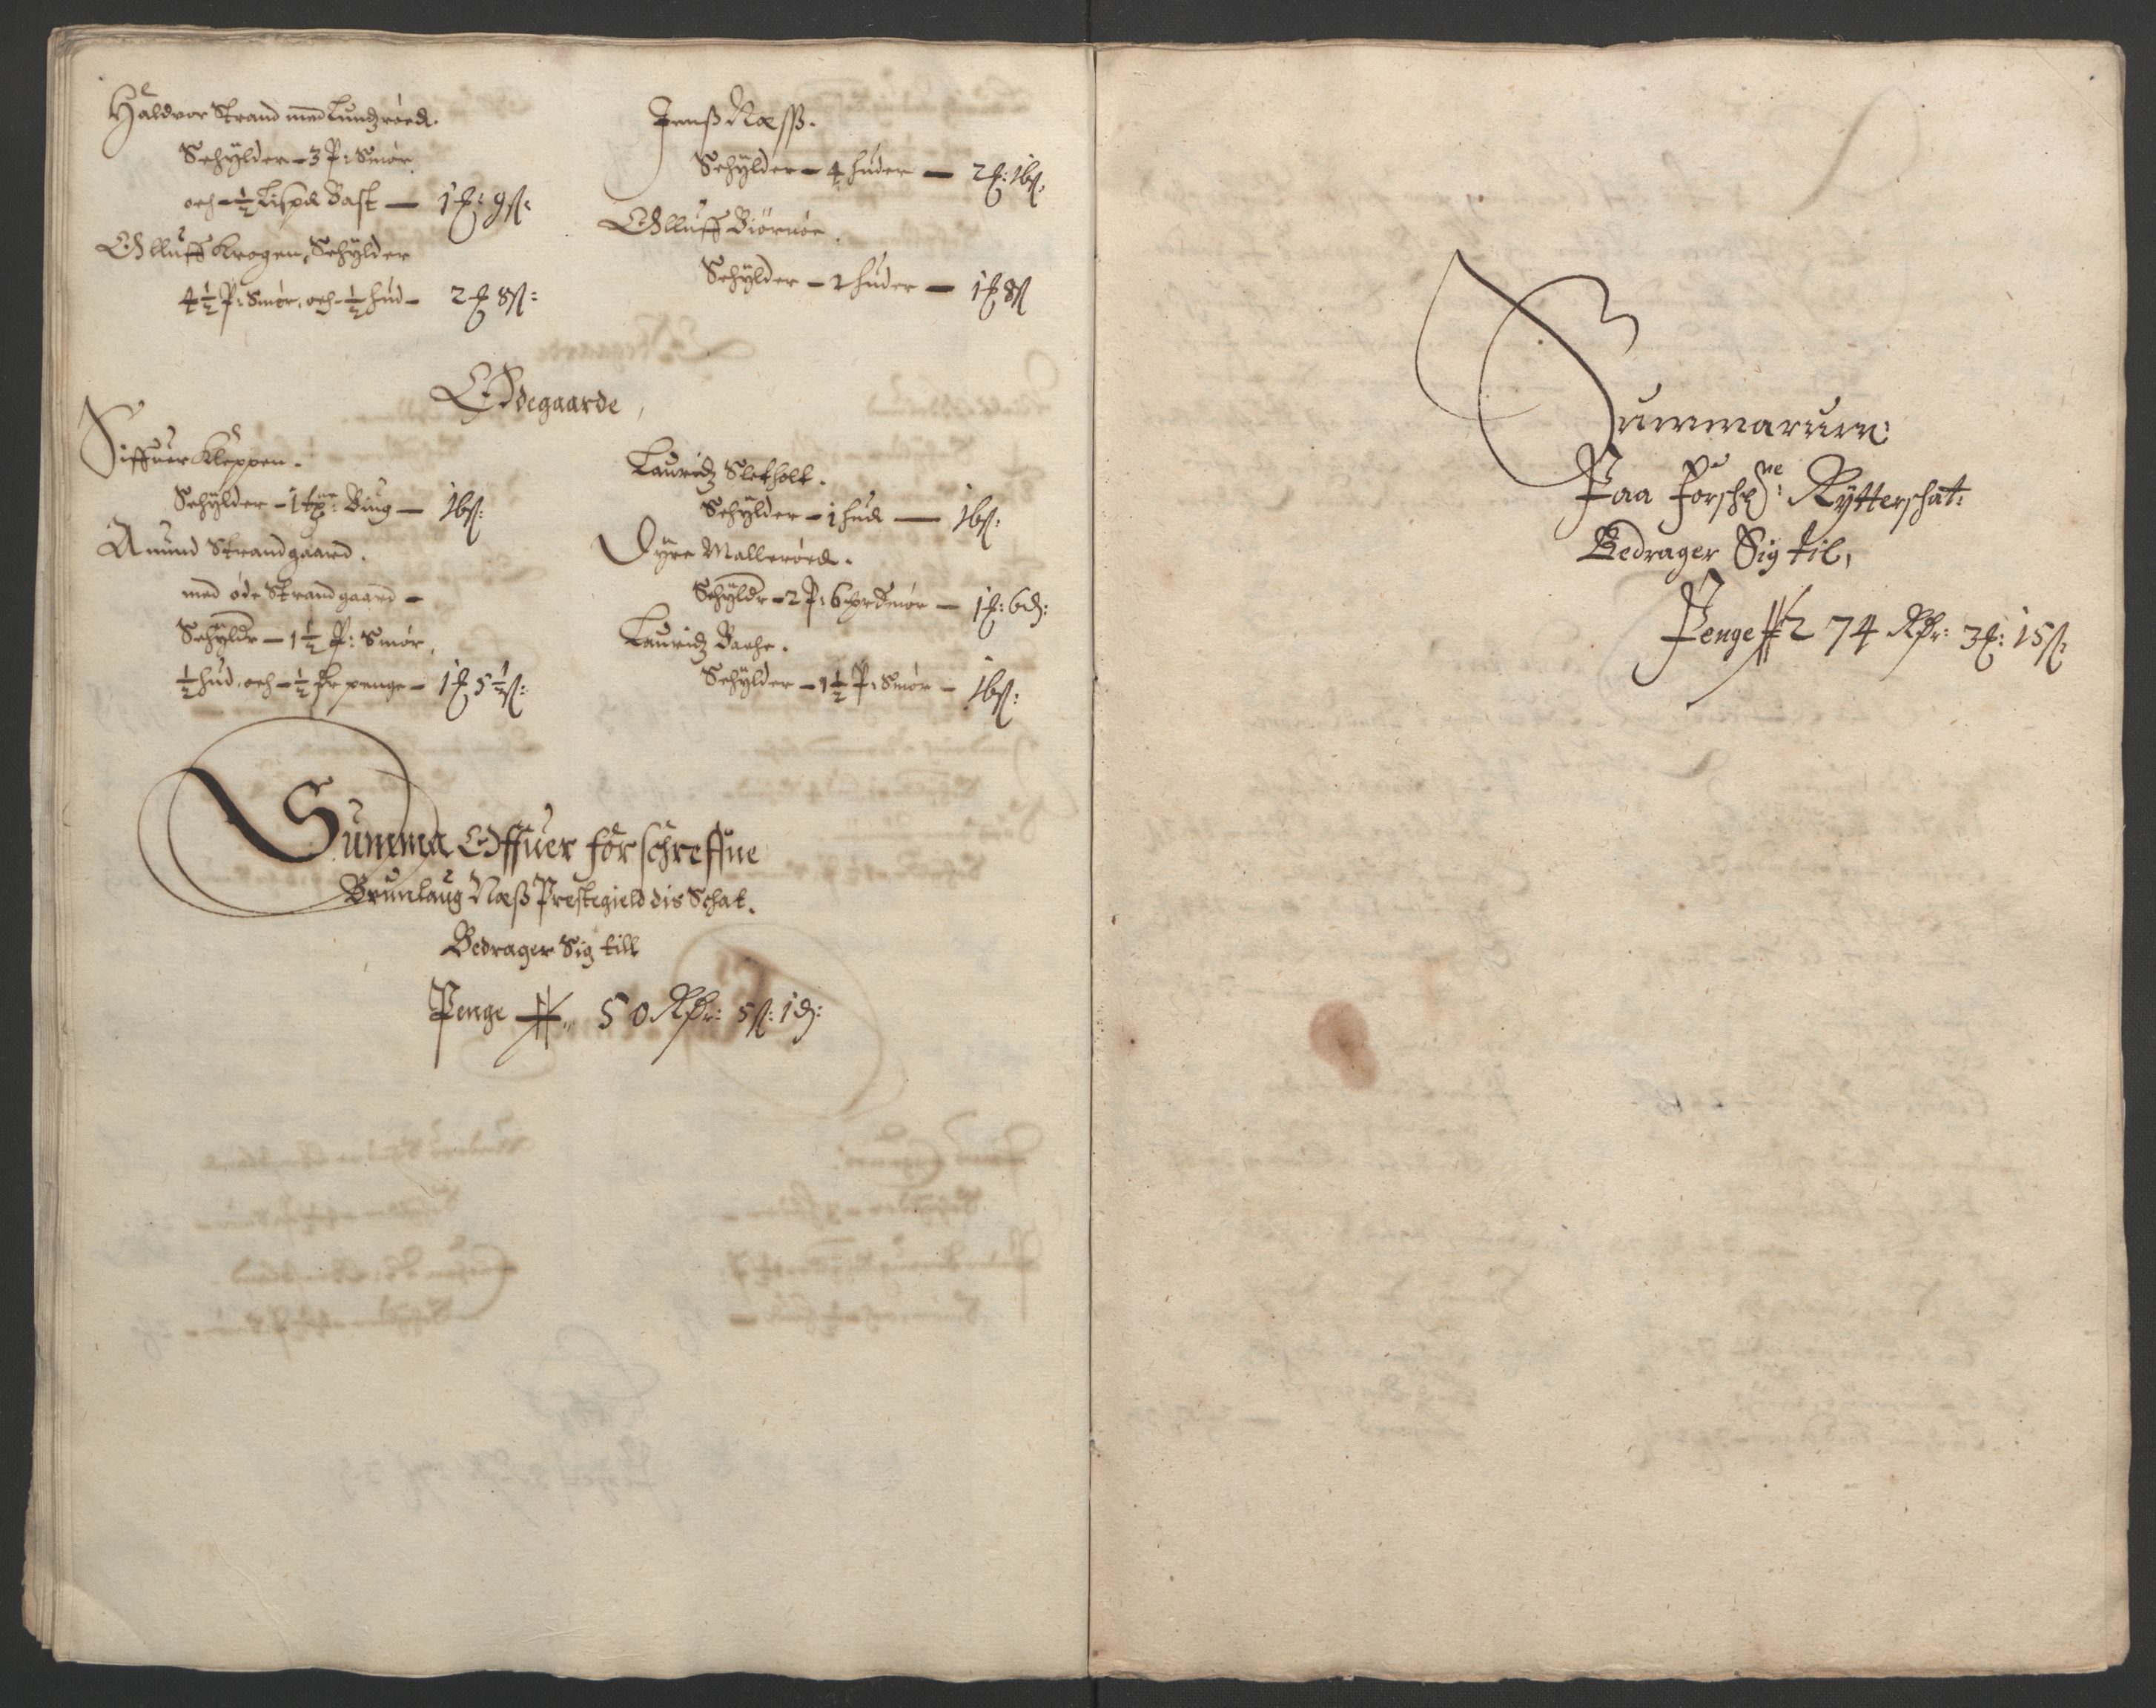 Haldvor Strand med Lundzrøed.
Schÿlder – 3 P: Smør
och – ½ Lispd Bast — 1 ƶ: 9 ß:
Olluff Krogen, Schÿlder
4½ P: Smør, och – ½ hud – 2 ƶ 8 ß:
Jenß Næss.
Schÿlder – 4 huder — 2 ƶ: 16 ß:
Olluff Biørnøe.
Schÿlder – 2 huder — 1 ƶ 8 ß
Ødegaarde,
Siffuer Kleppen.
Schÿlder – 1 tøe: Biug — 16 ß:
Anund Strandgaard.
med øde Strandgaard –
Schÿldr – 1½ P: Smør,
½ hud, och – ½ ƶr penge – 1 ƶ 5½ ß:
Lauridz Sletholt.
Schÿlder – 1 hud — 16 ß:
Dyre Mallerøed.
Schÿldr – 2 P: 6 Smør — 1 ƶ: 6 ₰:
Lauridz Bache.
Schÿlder – 1½ P: Smør – 16 ß:
Summa Offuer forschreffne
Brunlaug Næß Prestegield dis Schat.
Bedrager Sig till
Penge – 50 Rdr: 5 ß: 1 ₰:
Summarum
Paa Forschne: Rÿtterschat:
Bedrager Sig til,
Penge 274 Rdr: 3 ƶ: 15 ß: